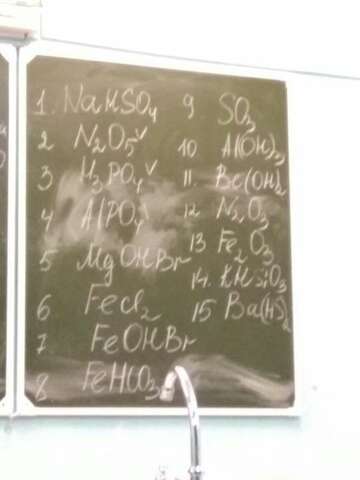 1. NaHSO₄
2 N₂O₅ v
3 H₃PO₄ v
4 AlPO₄
5 MgOHBr
6 FeCl₂
7. FeOHBr
8 FeHCO₃
9 SO₃
10 Al(OH)₃
11. Be(OH)₂
12 N₂O₃
13 Fe₂O₃
14. KHSiO₃
15 Ba(HS)₂